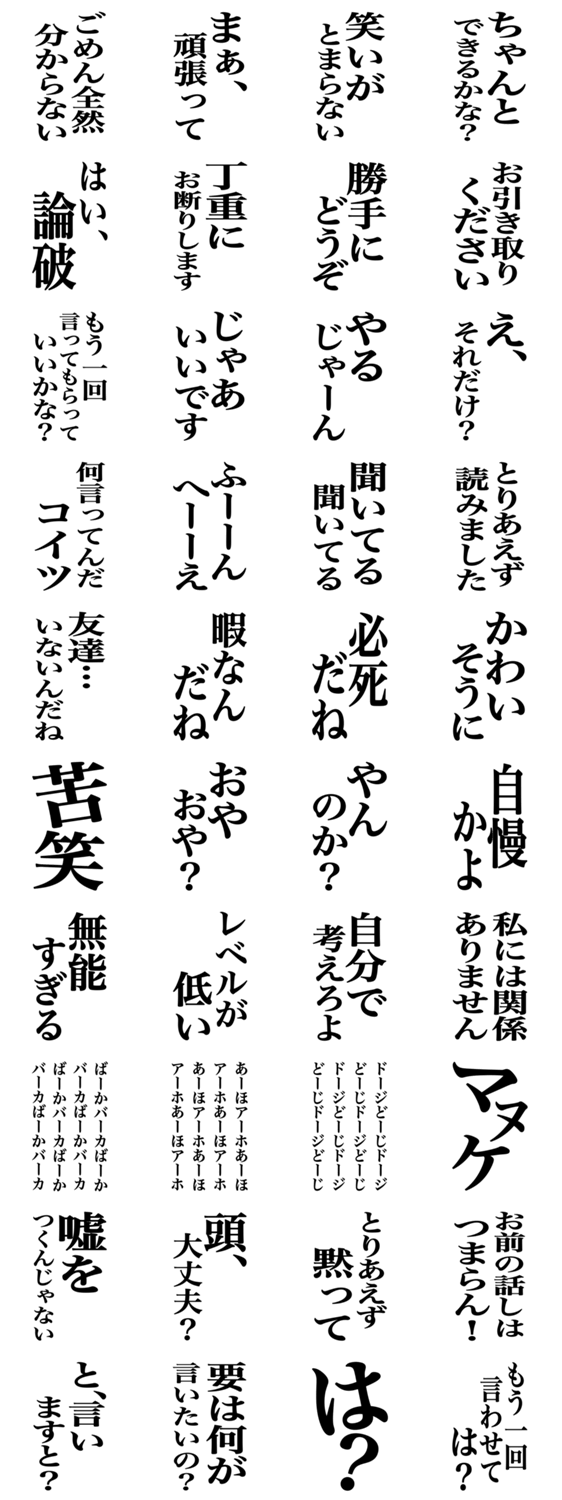 ごめん全然
分からない
まぁ、
頑張って
笑いが
とまらない
ちゃんと
できるかな？
はい、
論破
丁重に
お断りします
勝手に
どうぞ
お引き取り
ください
もう一回
言ってもらって
いいかな？
じゃあ
いいです
やる
じゃーん
え、
それだけ？
何言ってんだ
コイツ
ふーーん
へーーえ
聞いてる
聞いてる
とりあえず
読みました
友達…
いないんだね
暇なん
だね
必死
だね
かわい
そうに
苦笑
おや
おや？
やん
のか？
自慢
かよ
無能
すぎる
レベルが
低い
自分で
考えろよ
私には関係
ありません
ばーかバーカばーか
バーカばーかバーカ
ばーかバーカばーか
バーカばーかバーカ
あーほアーホあーほ
アーホあーほアーホ
あーほアーホあーほ
アーホあーほアーホ
ドージどーじドージ
どーじドージどーじ
ドージどーじドージ
どーじドージどーじ
マヌケ
嘘を
つくんじゃない
頭、
大丈夫？
とりあえず
黙って
お前の話しは
つまらん！
と、言い
ますと？
要は何が
言いたいの？
は？
もう一回
言わせて
は？